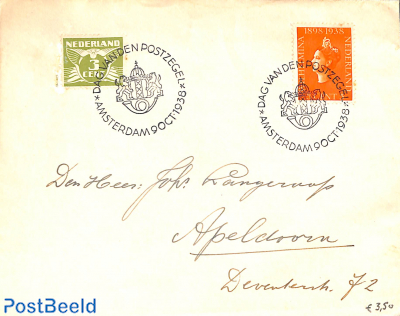 NEDERLAND
3
CENT
1898 1938
WILHELMINA
NEDERLAND
CENT
*DAG VAN DEN POSTZEGEL*
AMSTERDAM 9 OCT 1938
*DAG VAN DEN POSTZEGEL*
AMSTERDAM 9 OCT 1938
Den Heer: Joh.
Apeldoorn
Deventerstr. 72
€ 3,50
PostBeeld